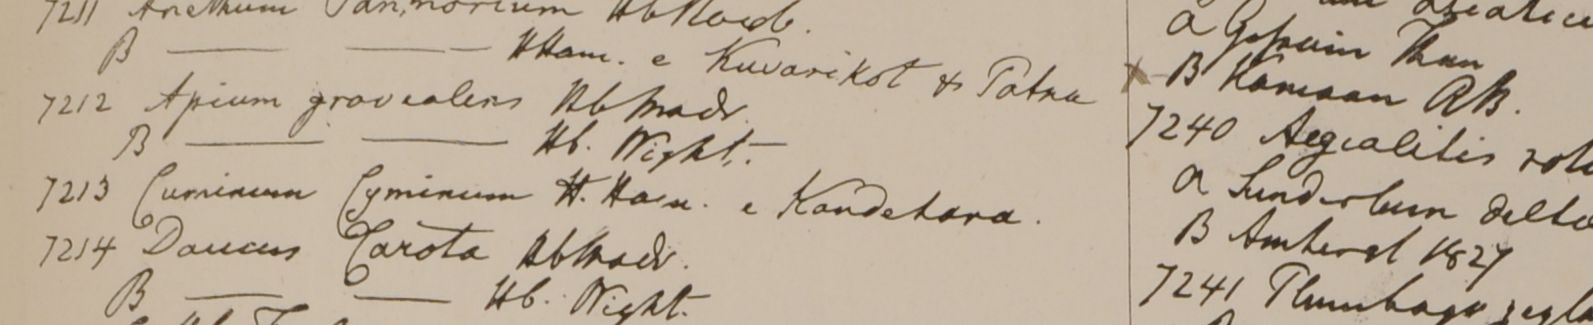 7211 Anethum Panmorium Hb Roxb.
B — — HHam. e Kuvarikot & Patna
7212 Apium graveolens Hb Madr.
B — — Hb. Wight.
7213 Cuminum Cyminum H. Ham. e Kandehara.
7214 Daucus Carota Hb Madr.
B — — Hb. Wight.
a Gossain Than
B Kamaon RB.
7240 Aegialitis
a Sunderbun delta
B Amherst 1827
7241 Plumbago